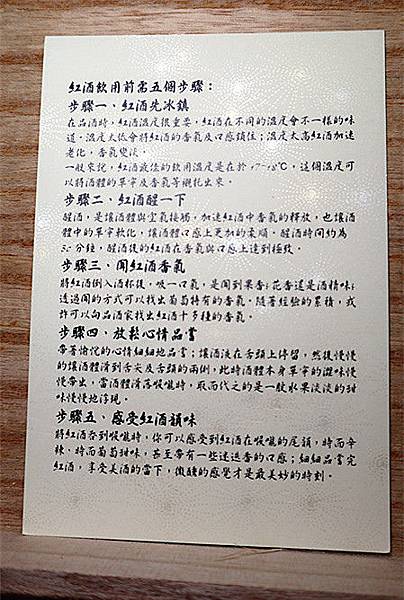 紅酒飲用前需五個步驟：
步驟一、紅酒先冰鎮
在品酒時，紅酒溫度很重要，紅酒在不同的溫度會不一樣的味
道。溫度太低會將紅酒的香氣及口感鎖住；溫度太高紅酒加速
老化，香氣變淡。
一般來說，紅酒最佳的飲用溫度是在於 17-18℃，這個溫度可
以將酒體的單寧及香氣等襯托出來。
步驟二、紅酒醒一下
醒酒，是讓酒體與空氣接觸，加速紅酒中香氣的釋放，也讓酒
體中的單寧軟化，讓酒體口感上更加的柔順。醒酒時間約為
30 分鐘，醒酒後的紅酒在香氣與口感上達到極致。
步驟三、聞紅酒香氣
將紅酒倒入酒杯後，吸一口氣，是聞到果香；花香還是酒精味；
透過聞的方式可以找出葡萄特有的香氣。隨著經驗的累積，或
許可以向品酒家找出紅酒十多種的香氣。
步驟四、放鬆心情品嘗
帶著愉悅的心情細細地品嘗；讓酒液在舌頭上停留，然後慢慢
的讓酒體滑到舌尖及舌頭的兩側，此時酒體本身單寧的澀味慢
慢帶出，當酒體滑落喉嚨時，取而代之的是一股水果淡淡的甜
味慢慢地浮現。
步驟五、感受紅酒韻味
將紅酒吞到喉嚨時，你可以感受到紅酒在喉嚨的尾韻，時而辛
辣，時而葡萄甜味，甚至帶有一些迷迭香的口感；細細品嘗完
紅酒，享受美酒的當下，微醺的感覺才是最美妙的時刻。